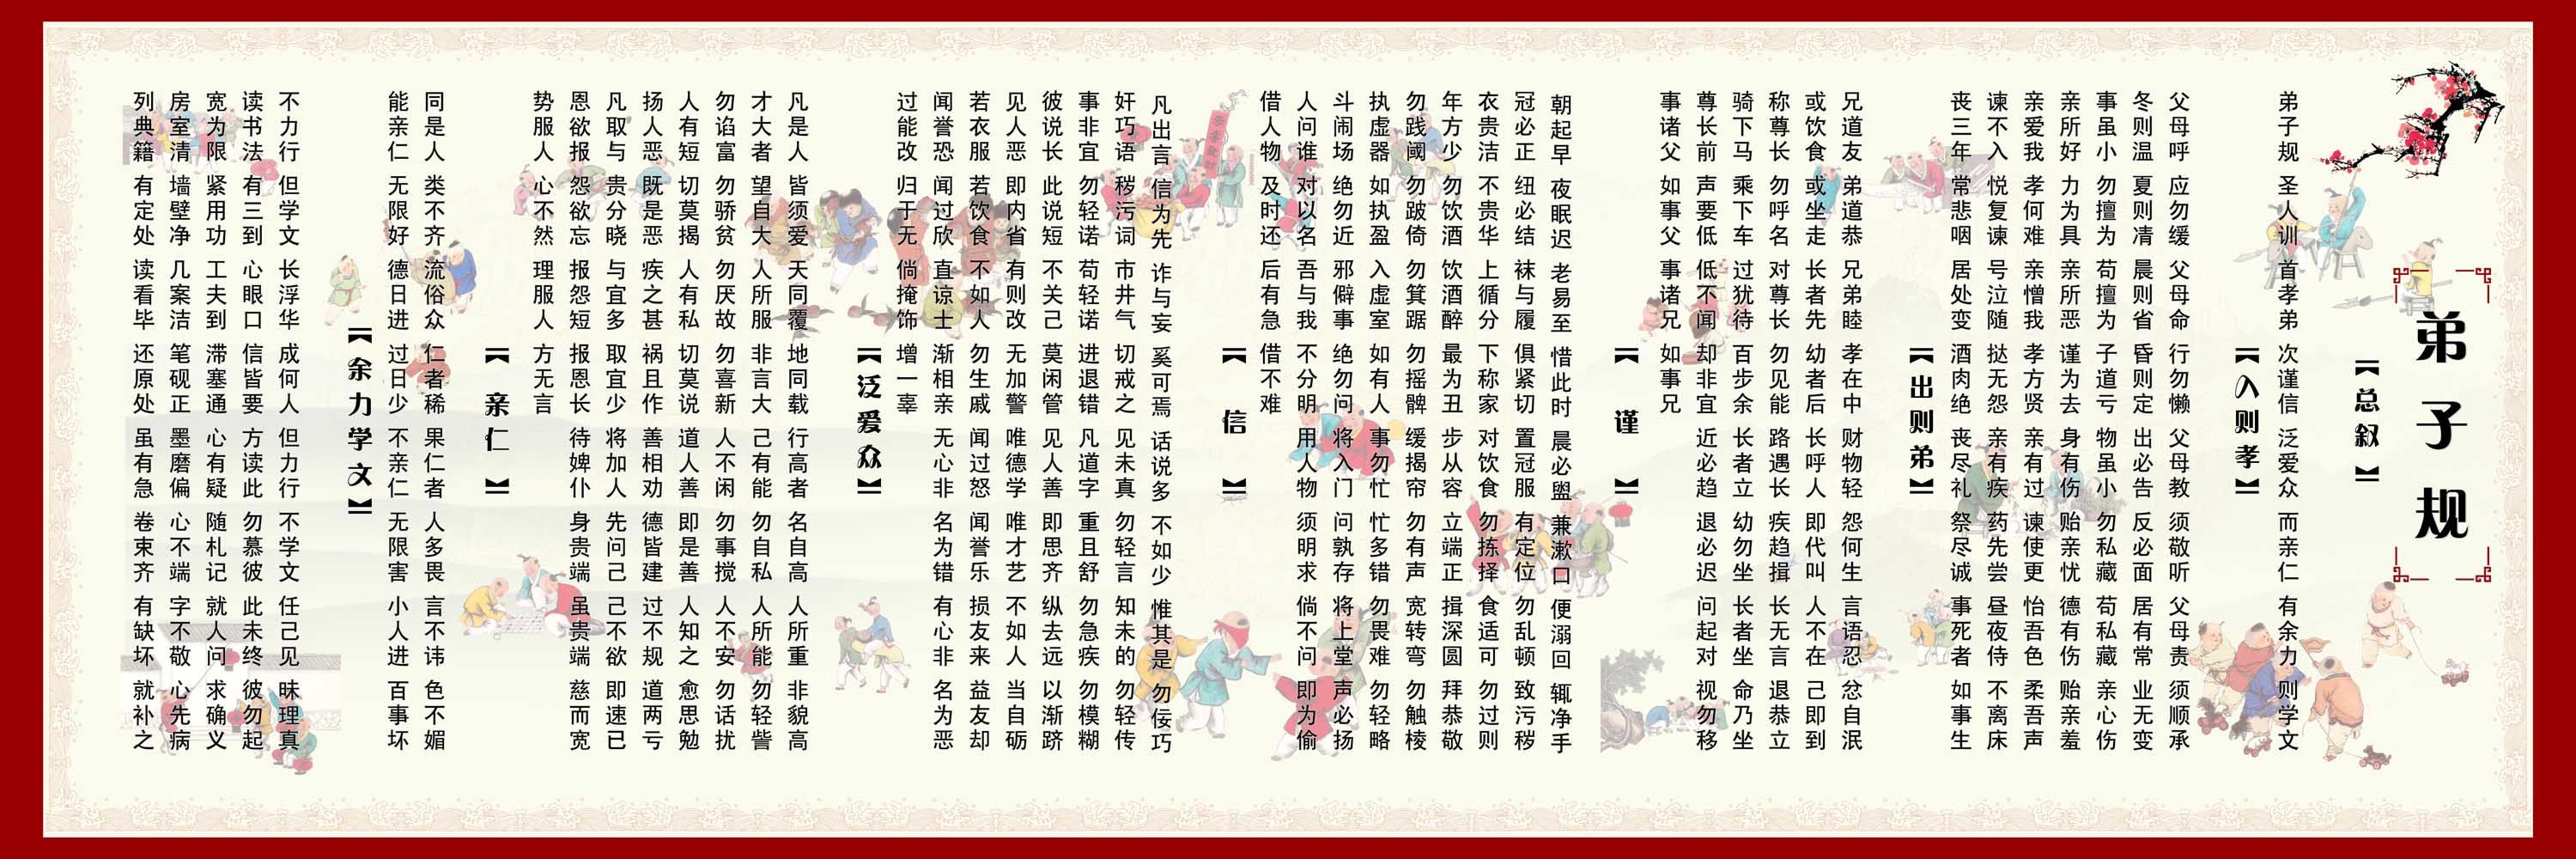 弟子规
【总叙】
弟子规 圣人训 首孝弟 次谨信 泛爱众 而亲仁 有余力 则学文
【入则孝】
父母呼 应勿缓 父母命 行勿懒 父母教 须敬听 父母责 须顺承
冬则温 夏则凊 晨则省 昏则定 出必告 反必面 居有常 业无变
事虽小 勿擅为 苟擅为 子道亏 物虽小 勿私藏 苟私藏 亲心伤
亲所好 力为具 亲所恶 谨为去 身有伤 贻亲忧 德有伤 贻亲羞
亲爱我 孝何难 亲憎我 孝方贤 亲有过 谏使更 怡吾色 柔吾声
谏不入 悦复谏 号泣随 挞无怨 亲有疾 药先尝 昼夜侍 不离床
丧三年 常悲咽 居处变 酒肉绝 丧尽礼 祭尽诚 事死者 如事生
【出则弟】
兄道友 弟道恭 兄弟睦 孝在中 财物轻 怨何生 言语忍 忿自泯
或饮食 或坐走 长者先 幼者后 长呼人 即代叫 人不在 己即到
称尊长 勿呼名 对尊长 勿见能 路遇长 疾趋揖 长无言 退恭立
骑下马 乘下车 过犹待 百步余 长者立 幼勿坐 长者坐 命乃坐
尊长前 声要低 低不闻 却非宜 近必趋 退必迟 问起对 视勿移
事诸父 如事父 事诸兄 如事兄
【谨】
朝起早 夜眠迟 老易至 惜此时 晨必盥 兼漱口 便溺回 辄净手
冠必正 纽必结 袜与履 俱紧切 置冠服 有定位 勿乱顿 致污秽
衣贵洁 不贵华 上循分 下称家 对饮食 勿拣择 食适可 勿过则
年方少 勿饮酒 饮酒醉 最为丑 步从容 立端正 揖深圆 拜恭敬
勿践阈 勿跛倚 勿箕踞 勿摇髀 缓揭帘 勿有声 宽转弯 勿触棱
执虚器 如执盈 入虚室 如有人 事勿忙 忙多错 勿畏难 勿轻略
斗闹场 绝勿近 邪僻事 绝勿问 将入门 问孰存 将上堂 声必扬
人问谁 对以名 吾与我 不分明 用人物 须明求 倘不问 即为偷
借人物 及时还 后有急 借不难
【信】
凡出言 信为先 诈与妄 奚可焉 话说多 不如少 惟其是 勿佞巧
奸巧语 秽污词 市井气 切戒之 见未真 勿轻言 知未的 勿轻传
事非宜 勿轻诺 苟轻诺 进退错 凡道字 重且舒 勿急疾 勿模糊
彼说长 此说短 不关己 莫闲管 见人善 即思齐 纵去远 以渐跻
见人恶 即内省 有则改 无加警 唯德学 唯才艺 不如人 当自砺
若衣服 若饮食 不如人 勿生戚 闻过怒 闻誉乐 损友来 益友却
闻誉恐 闻过欣 直谅士 渐相亲 无心非 名为错 有心非 名为恶
过能改 归于无 倘掩饰 增一辜
【泛爱众】
凡是人 皆须爱 天同覆 地同载 行高者 名自高 人所重 非貌高
才大者 望自大 人所服 非言大 己有能 勿自私 人所能 勿轻訾
勿谄富 勿骄贫 勿厌故 勿喜新 人不闲 勿事搅 人不安 勿话扰
人有短 切莫揭 人有私 切莫说 道人善 即是善 人知之 愈思勉
扬人恶 既是恶 疾之甚 祸且作 善相劝 德皆建 过不规 道两亏
凡取与 贵分晓 与宜多 取宜少 将加人 先问己 己不欲 即速已
恩欲报 怨欲忘 报怨短 报恩长 待婢仆 身贵端 虽贵端 慈而宽
势服人 心不然 理服人 方无言
【亲仁】
同是人 类不齐 流俗众 仁者稀 果仁者 人多畏 言不讳 色不媚
能亲仁 无限好 德日进 过日少 不亲仁 无限害 小人进 百事坏
【余力学文】
不力行 但学文 长浮华 成何人 但力行 不学文 任己见 昧理真
读书法 有三到 心眼口 信皆要 方读此 勿慕彼 此未终 彼勿起
宽为限 紧用功 工夫到 滞塞通 心有疑 随札记 就人问 求确义
房室清 墙壁净 几案洁 笔砚正 墨磨偏 心不端 字不敬 心先病
列典籍 有定处 读看毕 还原处 虽有急 卷束齐 有缺坏 就补之